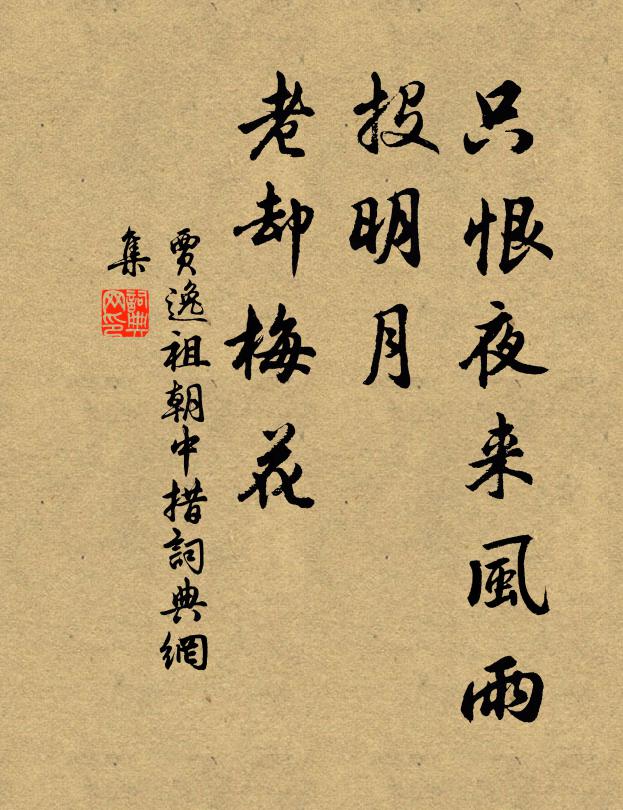 只恨夜来風雨
投明月
老却梅花
賈逸祖朝中措詞典網
集
詞典
网印